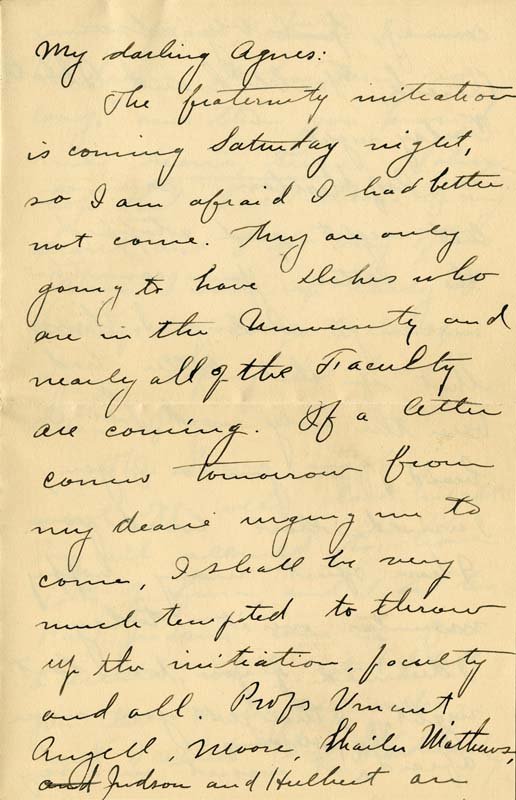 My darling Agnes:
The fraternity initiation
is coming Saturday night,
so I am afraid I had better
not come. They are only
going to have Dekes who
are in the University and
nearly all of the Faculty
are coming. If a letter
comes tomorrow from
my dearie urging me to
come, I shall be very
much tempted to throw
up the initiation, faculty
and all. Profs Vincent
Angell, Moore, Shailer Mathews,
and Judson and Hulbert are